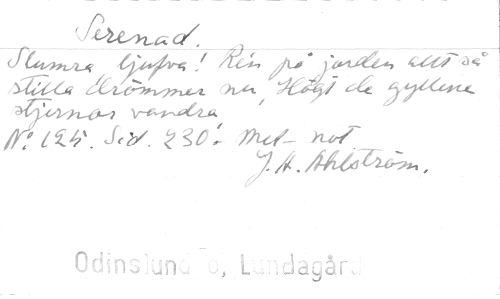 Serenad.
Slumra ljufva! Ren på jorden allt så
stilla drömmer nu, Högt de gyllene
stjernor vandra
No: 125. Sid. 230. - Mel- not
J. A. Ahlström.
Odinslund o, Lundagård